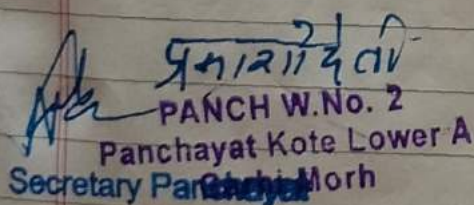 प्रभाशो देवी
PANCH W.No. 2
Panchayat Kote Lower A
Secretary Panchayat Morh